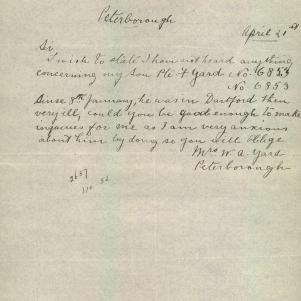 Peterborough
April 21st
Sir,
I wish to state I have not heard anything
concerning my Son Pte F Yard No. 6853
No 6853
Since 8th January, he was in Dartford then
very ill, could you be good enough to make
inquaries for me as I am very anxious
about him by doing so you will Oblige
Mrs W. A. Yard
Peterborough